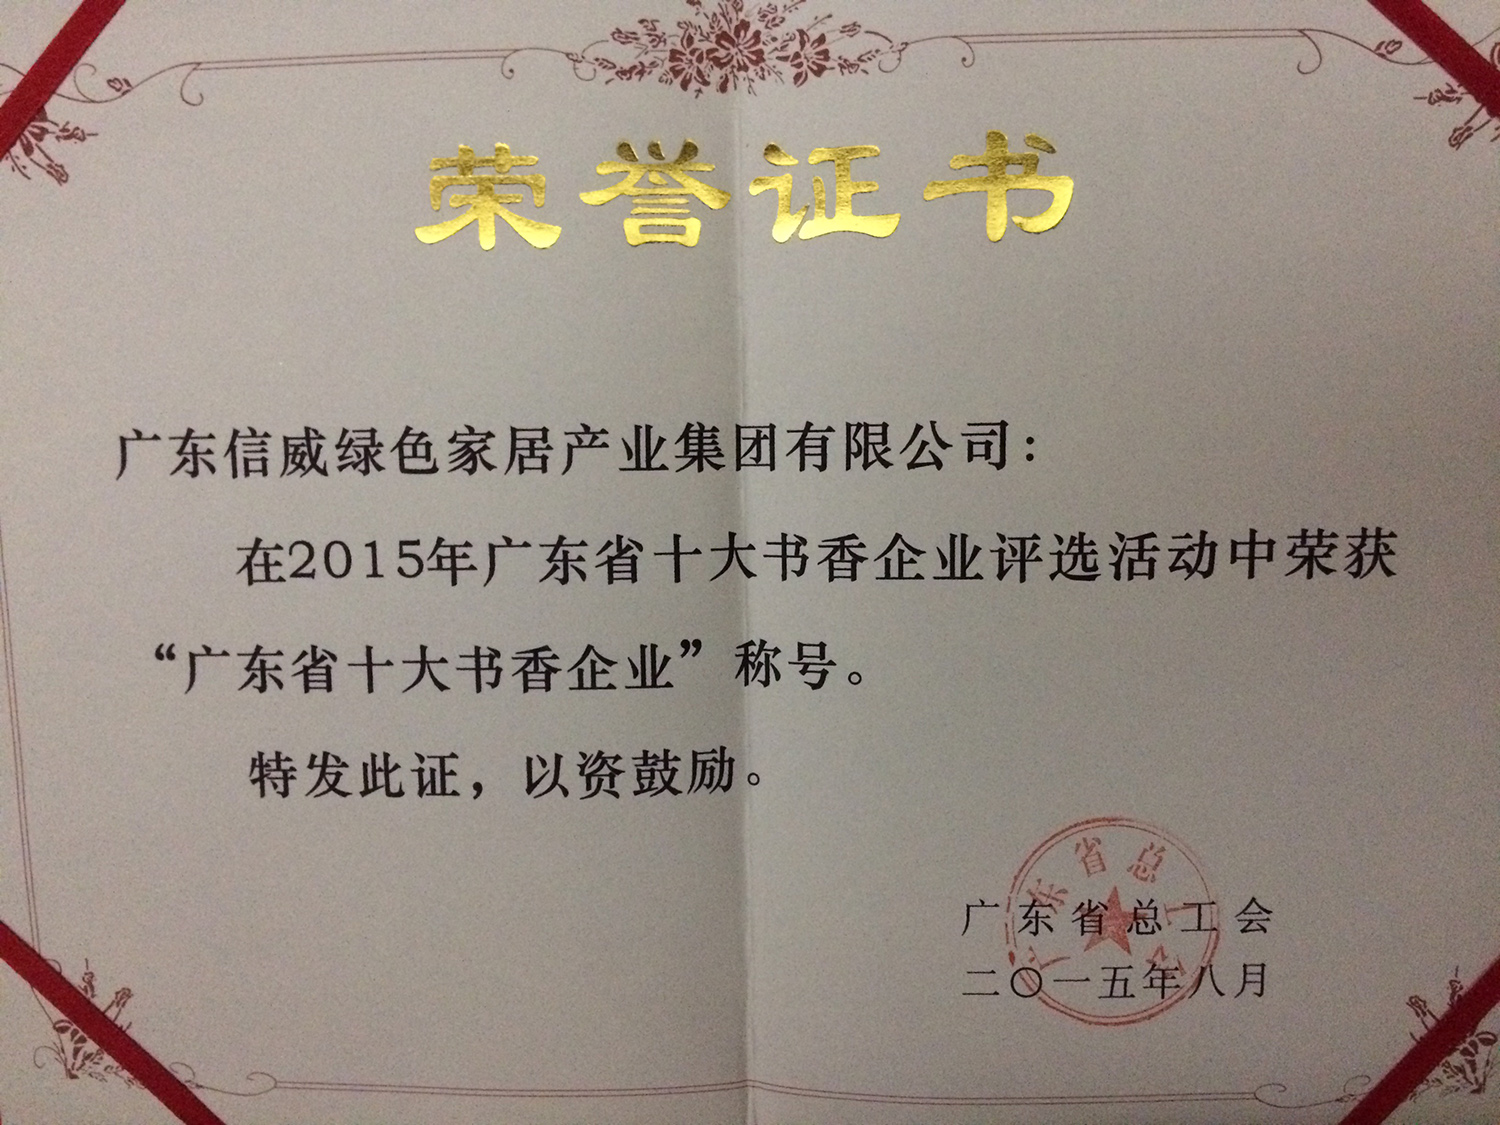 荣誉证书
广东信威绿色家居产业集团有限公司：
在2015年广东省十大书香企业评选活动中荣获
“广东省十大书香企业”称号。
特发此证，以资鼓励。
广东省总工会
广东省总工会
二〇一五年八月